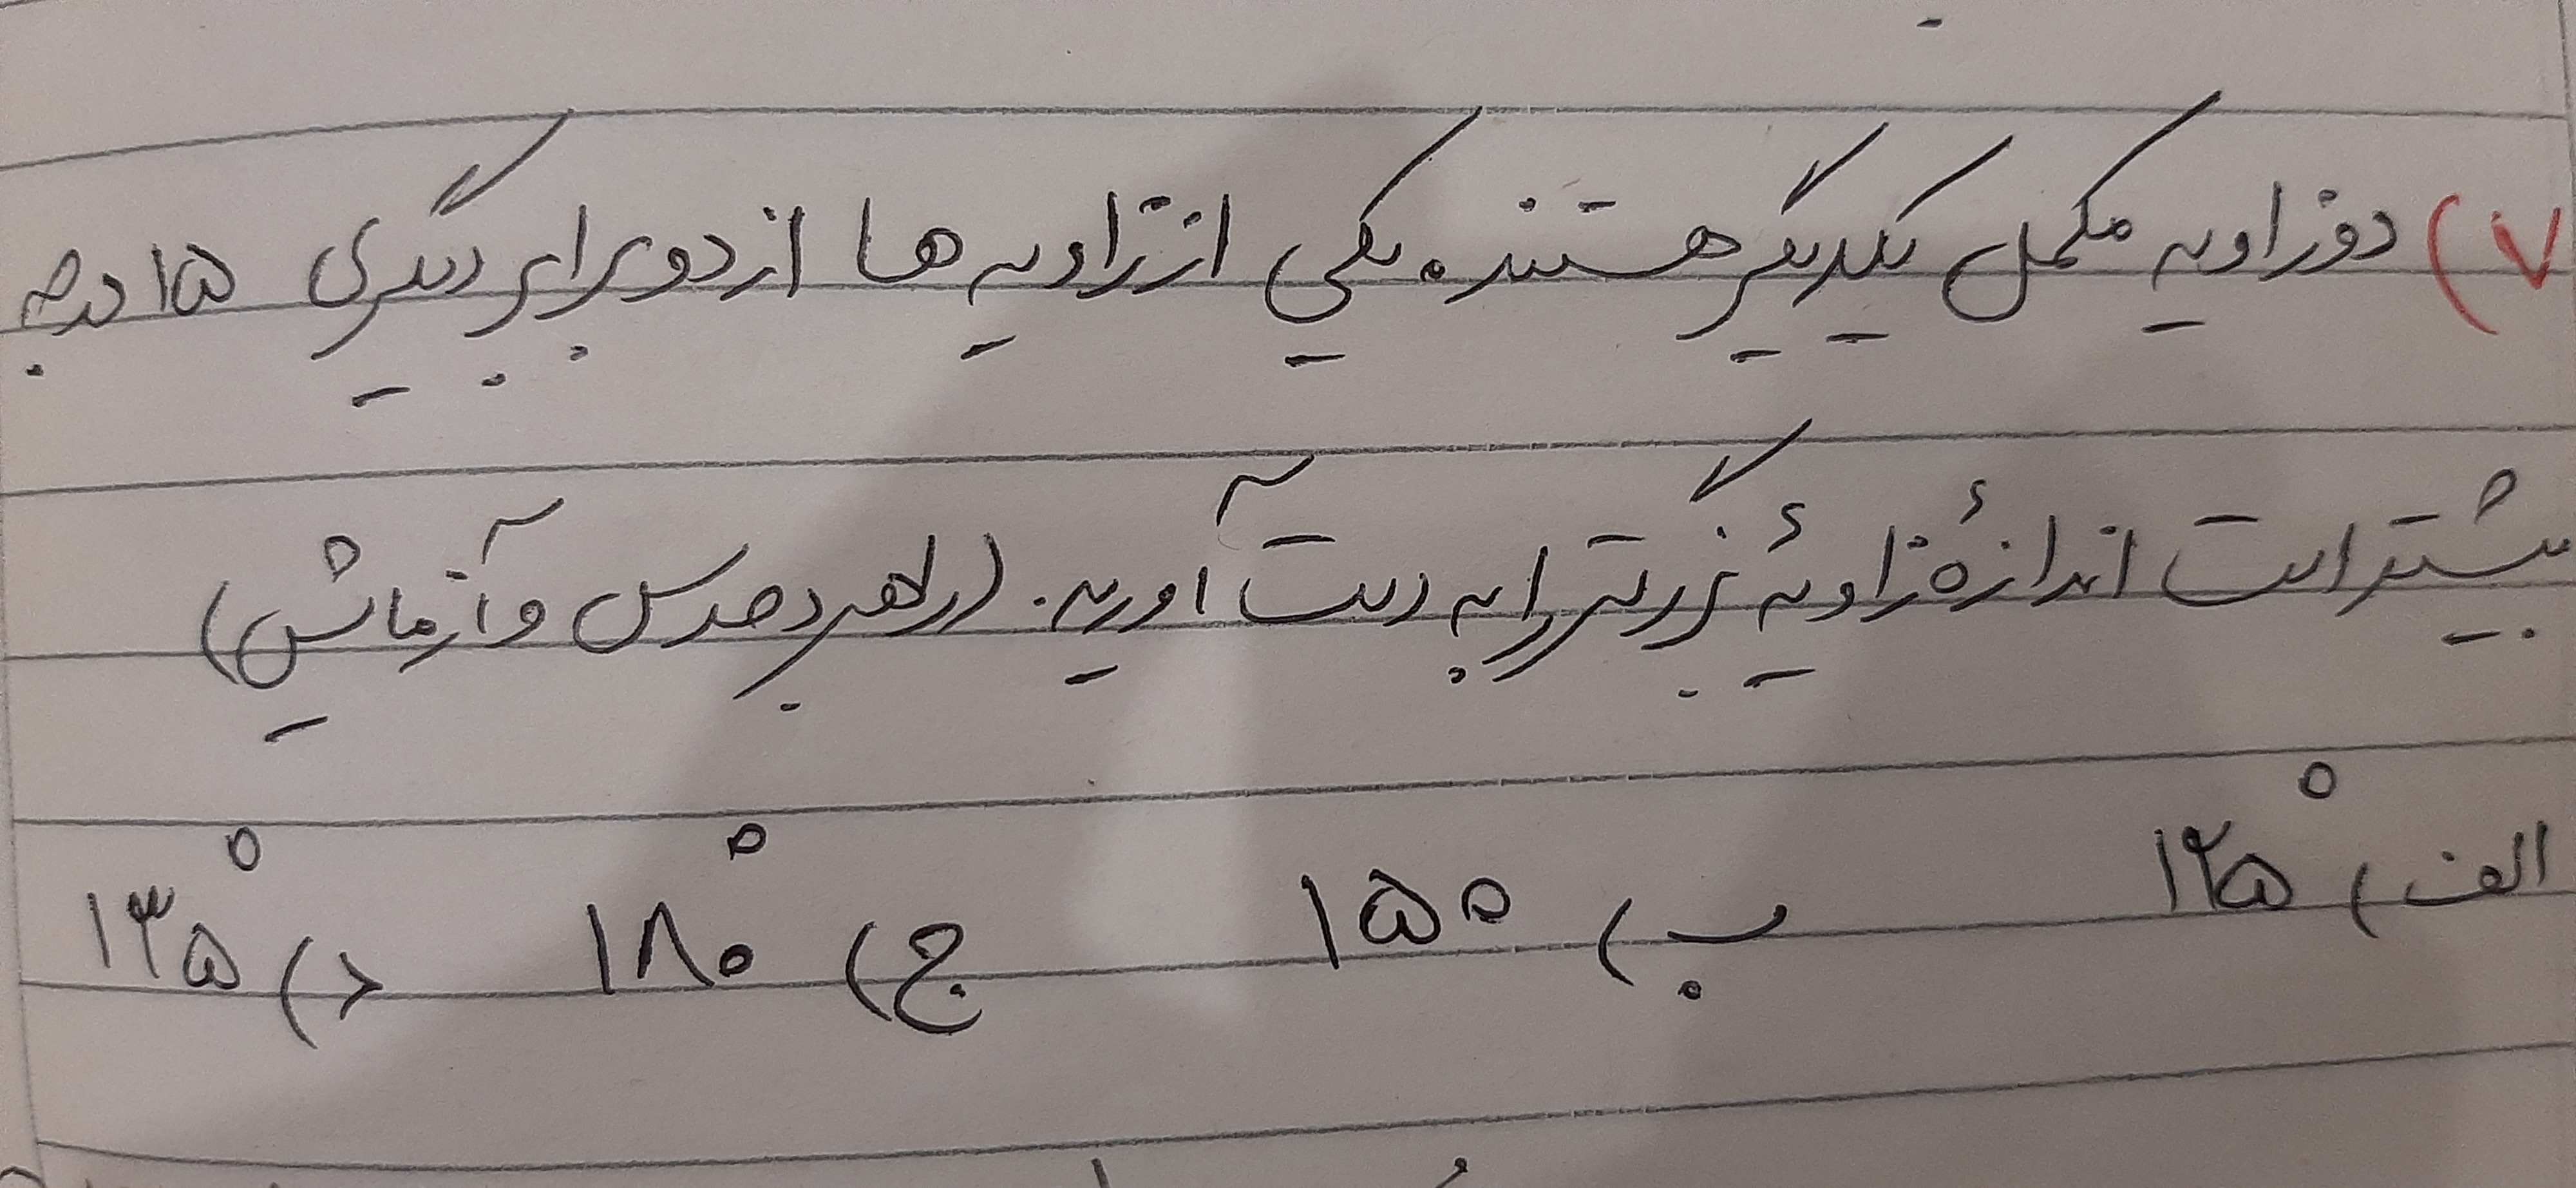 ۷) دو زاویه مکمل یکدیگر هستند. یکی از زاویه ها از دو برابر دیگری ۱۵ درجه
بیشتر است اندازهٔ زاویهٔ بزرگتر را به دست آورید. (راهبرد حدس و آزمایش)
الف) ۱۲۵° ب) ۱۵۰ ج) ۱۸۰° د) ۱۳۵°